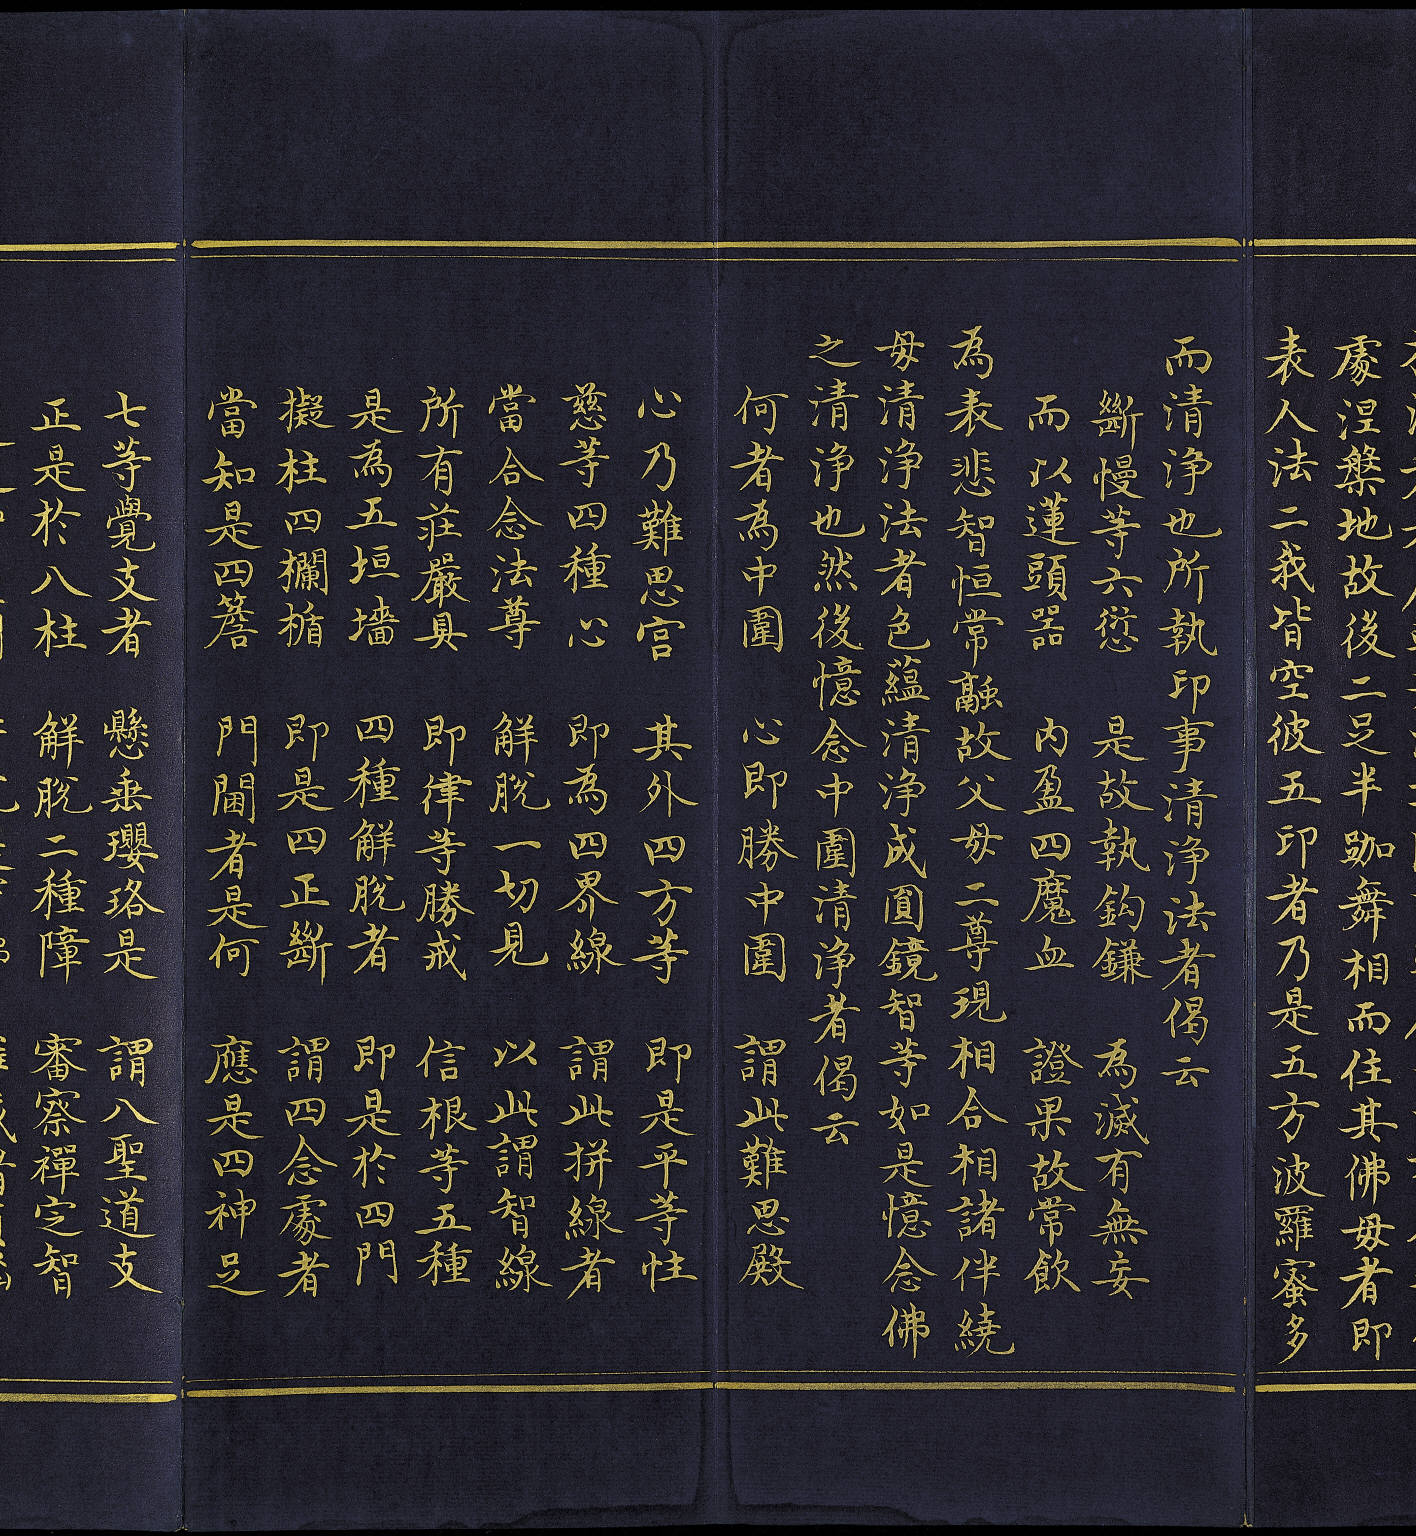 處涅槃地故後二足半跏舞相而住其佛母者即
表人法二我皆空彼五印者乃是五方波羅蜜多
而清淨也所執印事清淨法者偈云
斷慢等六愆　是故執鈎鎌　為滅有無妄
而以蓮頭器　內盈四魔血　證果故常飲
為表悲智恒常融故父母二尊現相合相諸伴繞
母清淨法者色蘊清淨成圓鏡智等如是憶念佛
之清淨也然後憶念中圍清淨者偈云
何者為中圍　心即勝中圍　謂此難思殿
心乃難思宮　其外四方等　即是平等性
慈等四種心　即為四界線　謂此拼線者
當合念法尊　解脫一切見　以此謂智線
所有莊嚴具　即律等勝戒　信根等五種
是為五垣墻　四種解脫者　即是於四門
擬柱四欄楯　即是四正斷　謂四念處者
當知是四簷　門閫者是何　應是四神足
七等覺支者　懸垂瓔珞是　謂八聖道支
正是於八柱　解脫二種障　審察禪定智